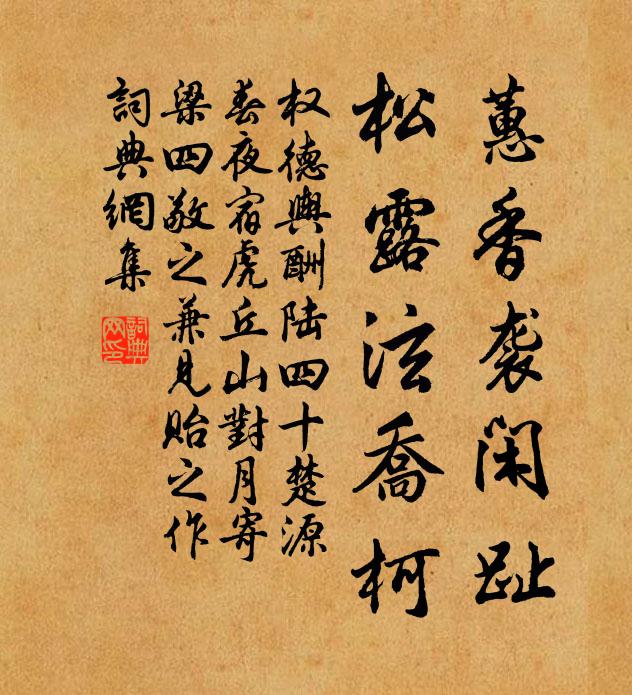 蕙香袭闲趾
松露泫喬柯
权德輿酬陆四十楚源
春夜宿虎丘山對月寄
梁四敬之兼見贻之作
詞典網集
詞典
网印